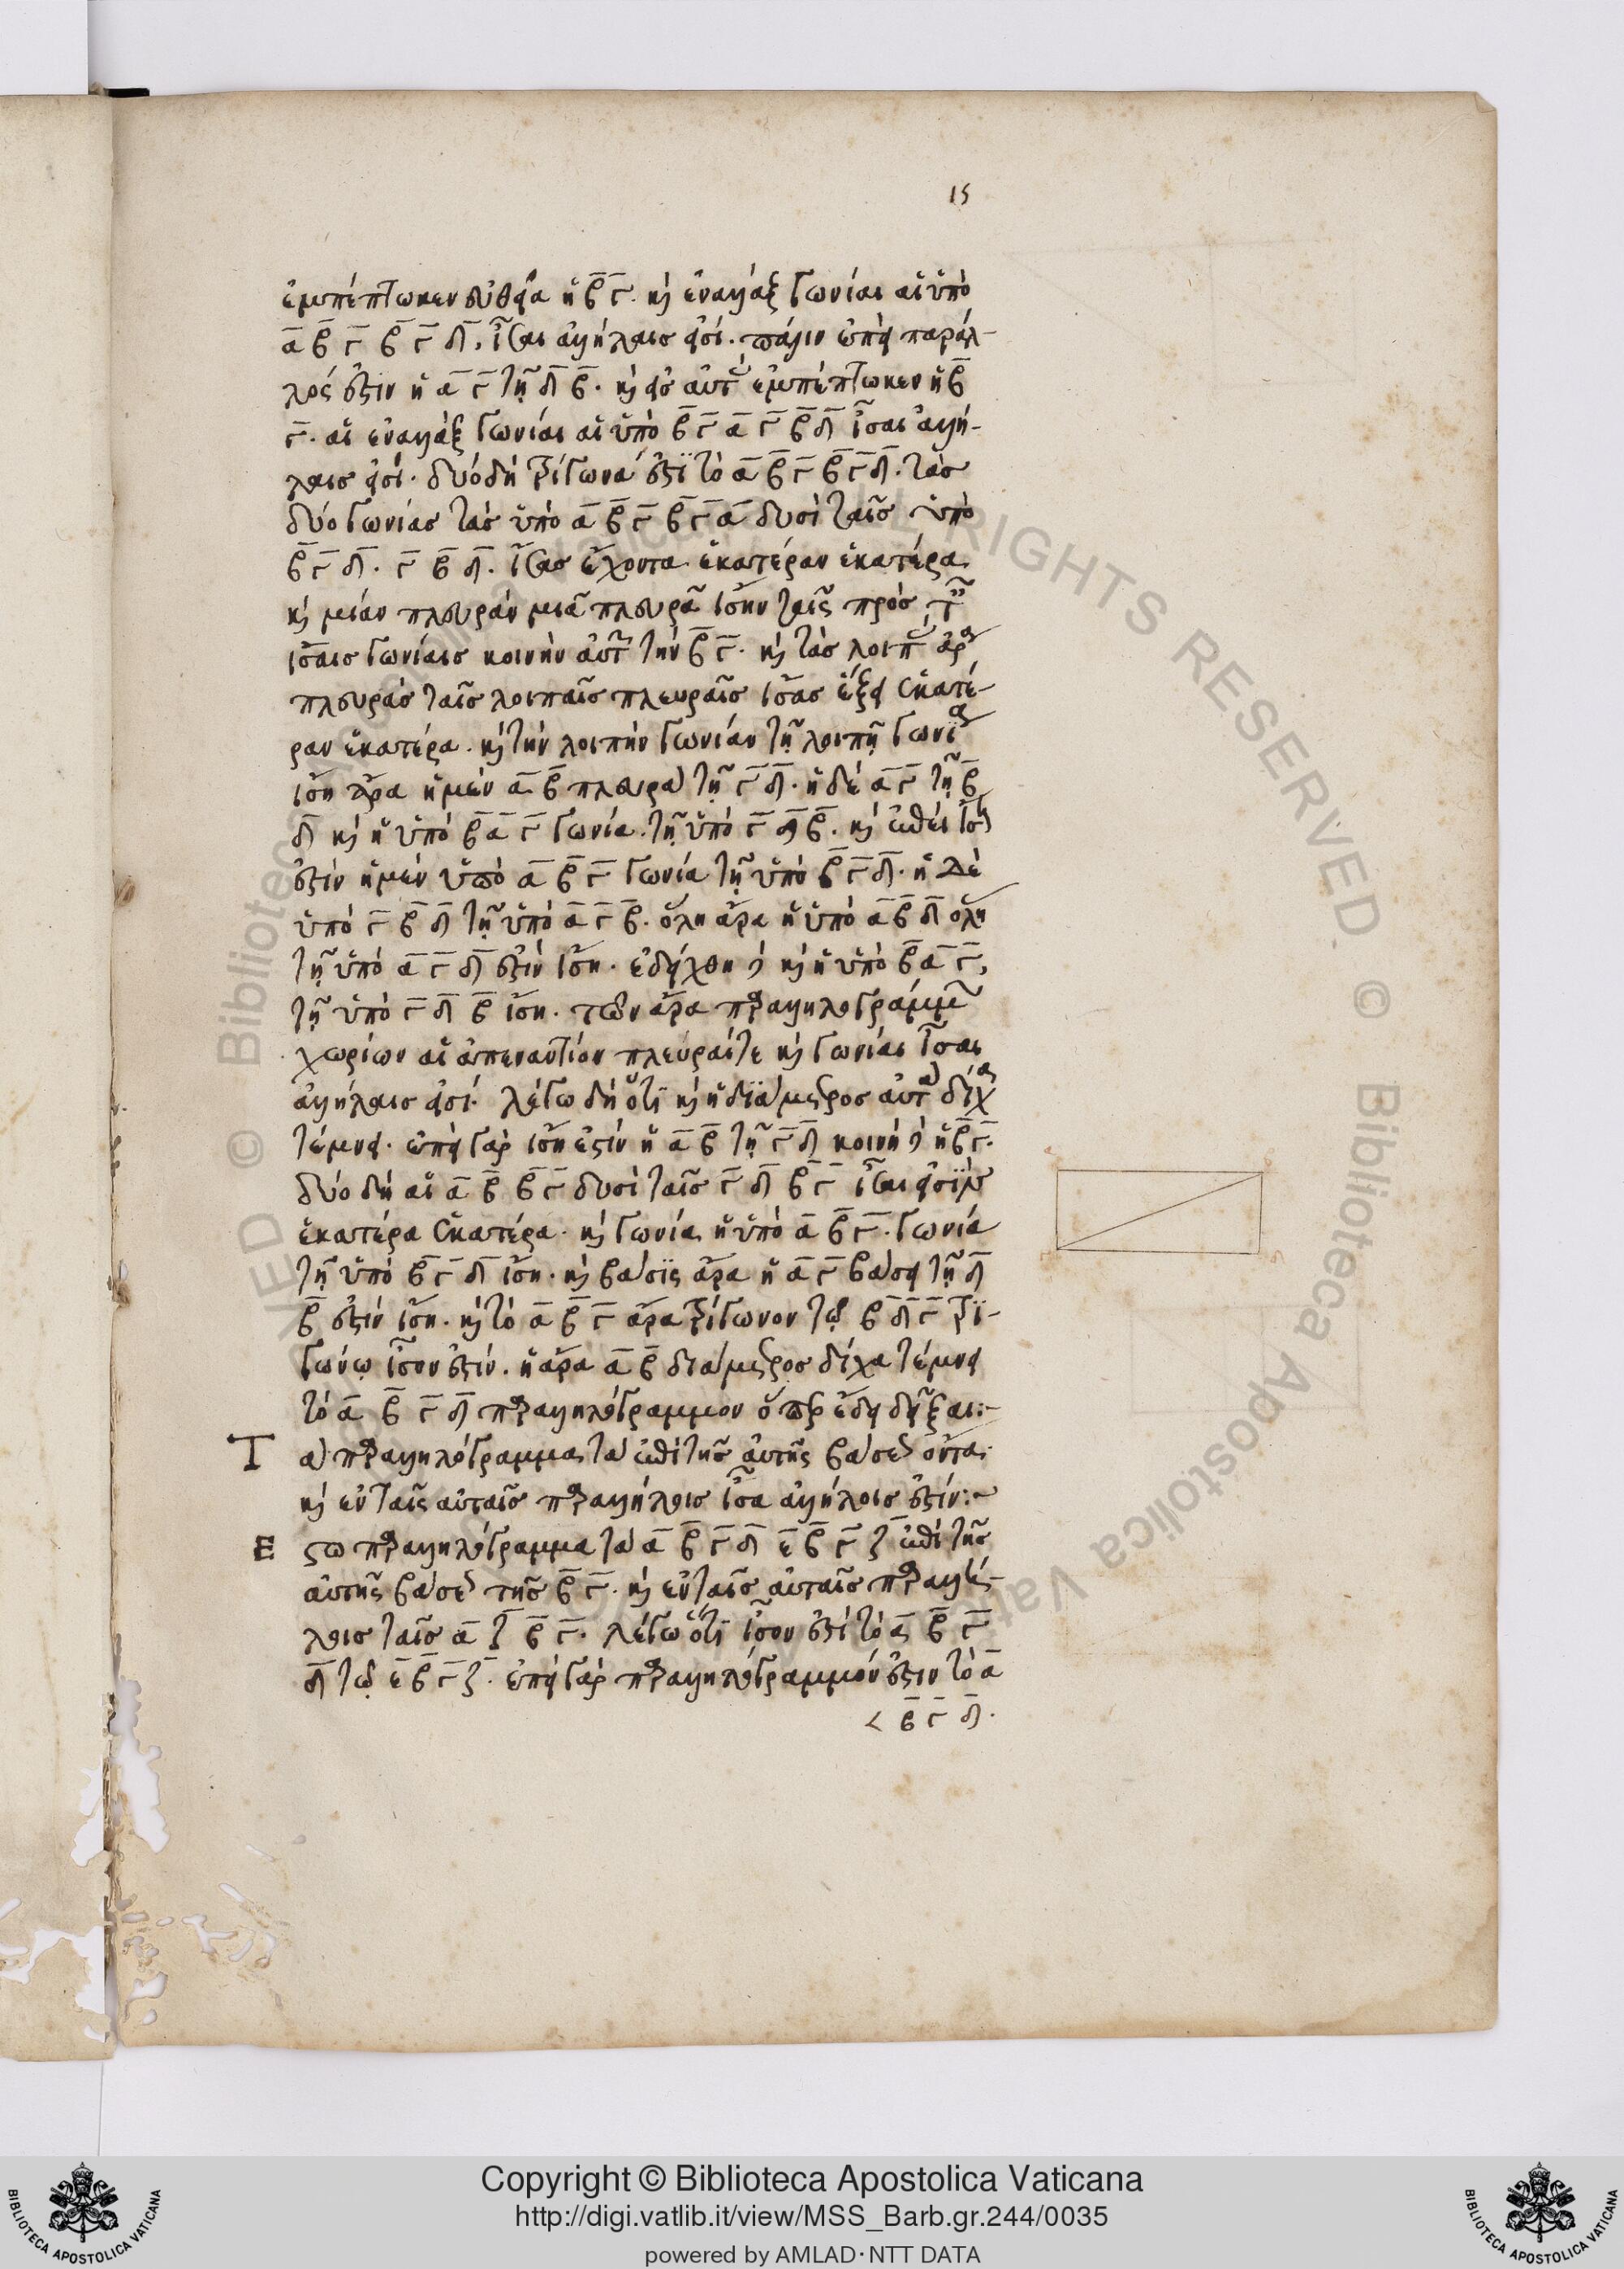 15
ἐμπέπτωκεν εὐθεῖα ἡ β̅ γ̅. κỳ ἐναλλὰξ γωνίαι αἱ ὑπὸ
α̅ β̅ γ̅ β̅ γ̅ δ̅, ἴσαι ἀλλήλαις εἰσί. πάλιν ἐπεὶ παράλ-
λός ἐστιν ἡ α̅ γ̅ τῇ δ̅ β̅. κỳ εἰς αὐτὰς ἐμπέπτωκεν ἡ β̅
γ̅. αἱ ἐναλλὰξ γωνίαι αἱ ὑπὸ β̅ γ̅ α̅ γ̅ β̅ δ̅ ἴσαι ἀλλή-
λαις εἰσί. δυό δὴ τρίγωνά ἐστϊ τὸ α̅ β̅ γ̅ β̅ γ̅ δ̅. τὰς
δύο γωνίας τὰς ὑπὸ α̅ β̅ γ̅ β̅ γ̅ α̅ δυσὶ ταῖς ὑπὸ
β̅ γ̅ δ̅. γ̅ β̅ δ̅. ἴσας ἔχοντα ἑκατέραν ἑκατέρα.
κỳ μίαν πλευρὰν μιᾶ πλευρᾶ ἴσην ταῖς πρὸς τ
ἴσαις γωνίαις κοινὴν αὐτῶν τὴν β̅ γ̅. κỳ τὰς λοιπὰς ἄρα
πλευρὰς ταῖς λοιπαῖς πλευραῖς ἴσας ἕξει ἑκατέ-
ραν ἑκατέρα. κỳ τὴν λοιπὴν γωνίαν τῇ λοιπῇ γωνία
ἴση ἄρα ἡ μὲν α̅ β̅ πλευρὰ τῇ γ̅ δ̅. ἡ δὲ α̅ γ̅ τῇ β̅
δ̅ κỳ ἡ ὑπὸ β̅ α̅ γ̅ γωνία. τῇ ὑπὸ γ̅ δ̅ β̅. κỳ ἐπεὶ ἴση
ἐστὶν ἡ μὲν ὑπὸ α̅ β̅ γ̅ γωνία τῇ ὑπὸ β̅ γ̅ δ̅. ἡ δὲ
ὑπὸ γ̅ β̅ δ̅ τῇ ὑπὸ α̅ γ̅ β̅. ὅλη ἄρα ἡ ὑπὸ α̅ β̅ δ̅ ὅλη
τῇ ὑπὸ α̅ γ̅ δ̅ ἐστὶν ἴση. ἐδείχθη δὲ κỳ ἡ ὑπὸ β̅ α̅ γ̅,
τῇ ὑπὸ γ̅ δ̅ β̅ ἴση. τῶν ἄρα παραλληλογράμμων
χωρίων αἱ ἀπεναντίον πλευραίτε κỳ γωνίαι ἴσαι
ἀλλήλαις εἰσί. λέγω δὴ ὅτϊ κỳ ἡ δϊάμετρος αὐτὰ δίχα
τέμνει. ἐπεὶ γὰρ ἴση ἐστὶν ἡ α̅ β̅ τῇ γ̅ δ̅ κοινὴ δὲ ἡ β̅ γ̅.
δύο δὴ αἱ α̅ β̅ β̅ γ̅ δυσὶ ταῖς γ̅ δ̅ β̅ γ̅ ἴσαι εἰσὶν
ἑκατέρα ἑκατέρα. κỳ γωνία ἡ ὑπὸ α̅ β̅ γ̅. γωνία
τῇ ὑπὸ β̅ γ̅ δ̅ ἴση. κỳ βάσϊς ἄρα ἡ α̅ γ̅ βάσει τῇ δ̅
β̅ ἐστὶν ἴση. κỳ τὸ α̅ β̅ γ̅ ἄρα τρίγωνον τῷ β̅ δ̅ γ̅ τρϊ-
γώνῳ ἴσον ἐστίν. ἡ ἄρα α̅ β̅ διάμετρος δίχα τέμνει
τὸ α̅ β̅ γ̅ δ̅ παραλληλόγραμμον ὅπερ ἔδει δεῖξαι:-
Τ ὰ παραλληλόγραμμα τὰ ἐπὶ τῆς αὐτῆς βάσεως ὄντα.
κỳ ἐν ταῖς αὐταῖς παραλλήλοις ἴσα ἀλλήλοις ἐστίν:~
Ε στω παραλληλόγραμμα τὰ α̅ β̅ γ̅ δ̅ ε̅ β̅ γ̅ ζ̅ ἐπὶ τῆς
αὐτῆς βάσεως τῆς β̅ γ̅. κỳ ἐν ταῖς αὐταῖς παραλλή-
λοις ταῖς α̅ ζ̅ β̅ γ̅. λέγω ὅτϊ ἴσον ἐστὶ τὸ α̅ β̅ γ̅
δ̅ τῷ ε̅ β̅ γ̅ ζ̅. ἐπεὶ γὰρ παραλληλόγραμμόν ἐστιν τὸ α̅
< β̅ γ̅ δ̅.
Copyright © Biblioteca Apostolica Vaticana
http://digi.vatlib.it/view/MSS_Barb.gr.244/0035
powered by AMLAD·NTT DATA
BIBLIOTECA APOSTOLICA VATICANA
BIBLIOTECA APOSTOLICA VATICANA